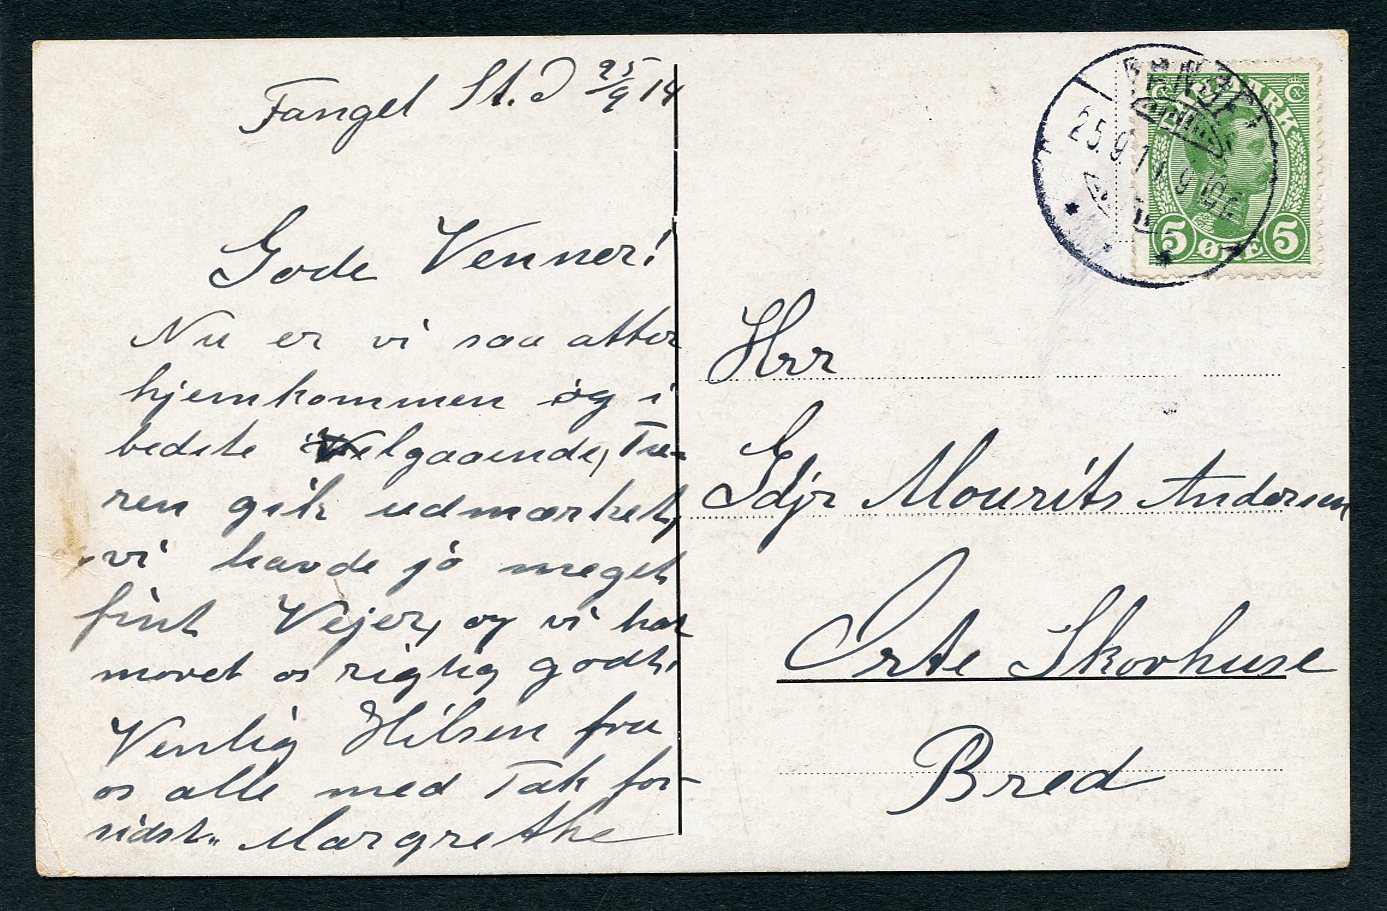 Fangel St. D 25/9 14
Gode Venner!
Nu er vi saa atter
hjemkommen og i
bedste Velgaaende, Tu-
ren gik udmærket,
vi havde jo meget
fint Vejer, og vi har
moret os rigtig godt.
Venlig Hilsen fra
os alle med Tak for
sidst„ Margrethe
DANMARK
25.9.1
5 ØRE 5
Hrr
Gdjr Mourits Andersen
Orte Skovhuse
Bred